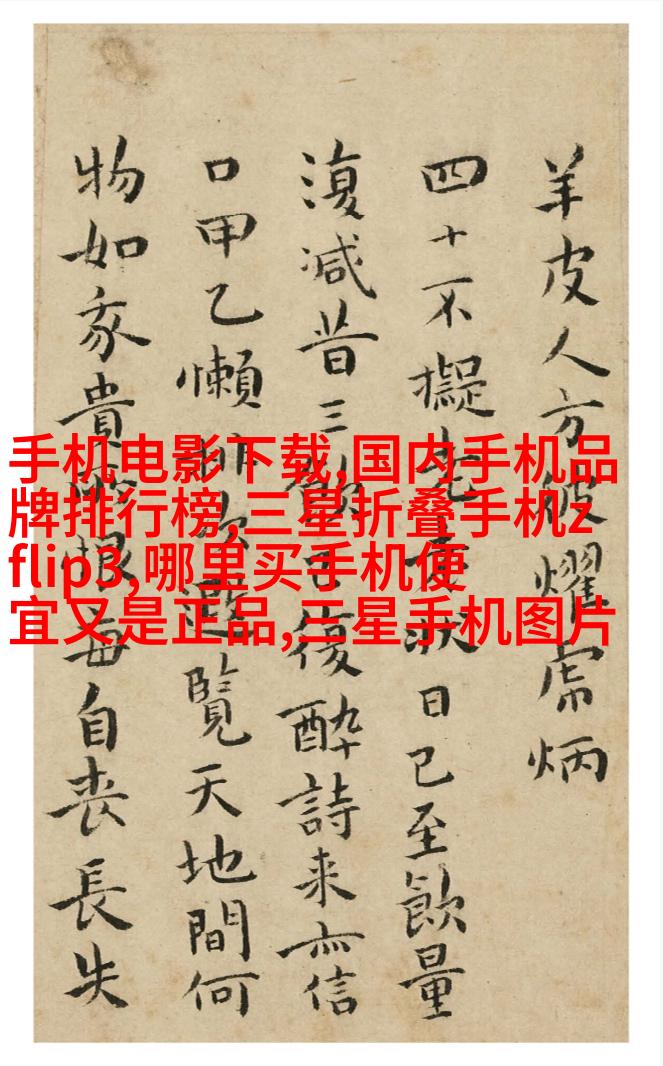 手机电影下载,国内手机品
牌排行榜,三星折叠手机z
flip3,哪里买手机便
宜又是正品,三星手机图片
羊皮人方燿虎炳
四十不擬日已至飲量
復減昔三復醉詩来亦信
口甲乙懶避覽天地間何
物如家貴恨每自丧長失